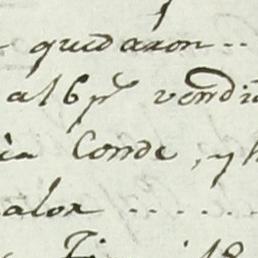 quedaron ..
al 6 p^r vendi
Conde, y h
alor .....